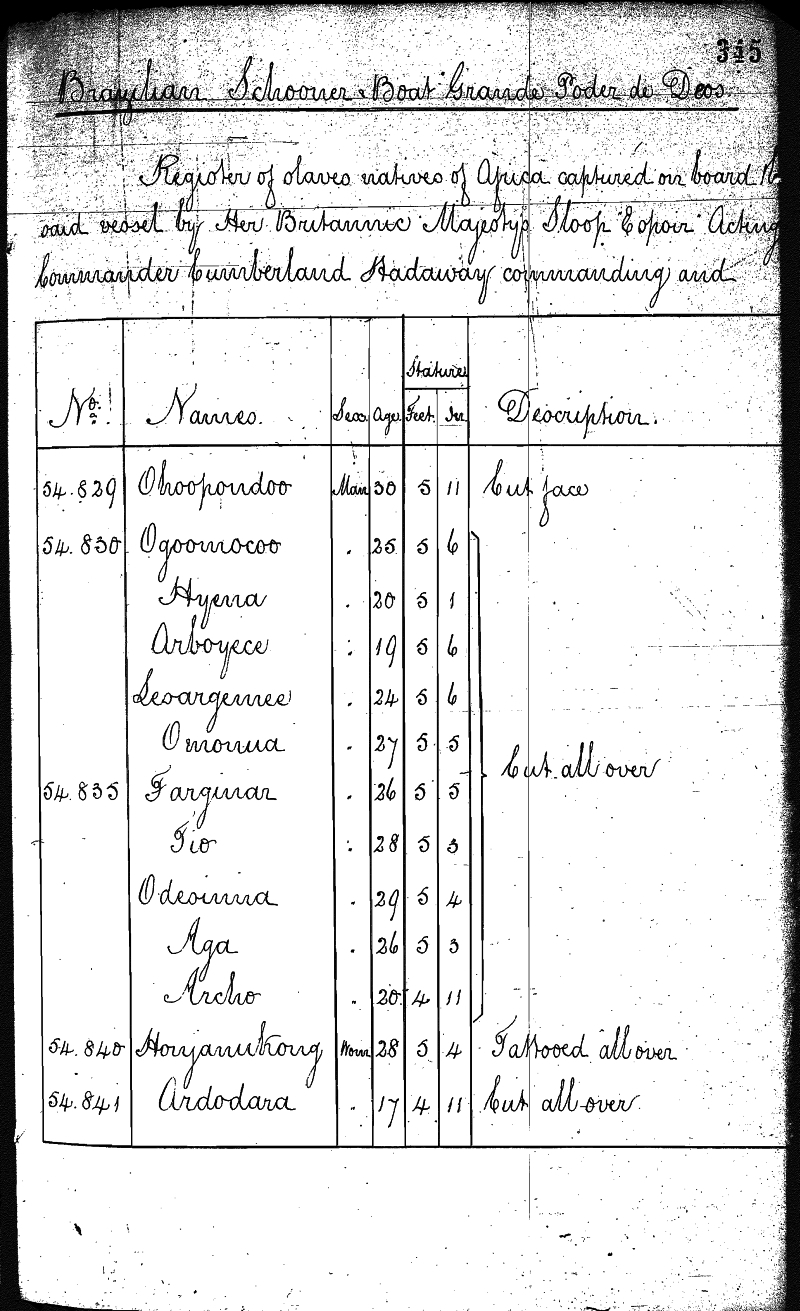 345
Brazilian Schooner Boat "Grande Poder de Deos.
Register of slaves natives of Africa captured on board the
said vessel by Her Britannic Majestys Sloop "Espoir" Acting
Commander Cumberland Hadaway commanding and
Stature
No. Names. Sex. Age Feet. In. Description.
54.829 Ohoopondoo Man 30 5 11 Cut face
54.830 Ogoomocoo . 25 5 6
Hyena . 20 5 1
Arboyece . 19 5 6
Lesargemee . 24 5 6
Omonua . 27 5 5
Cut all over
54.835 Farginar . 26 5 5
Tio . 28 5 3
Odesinna . 29 5 4
Aga . 26 5 3
Archo . 20 4 11
54.840 Honjanutrong Wom 28 5 4 Tattooed all over
54.841 Ardodara . 17 4 11 Cut all over